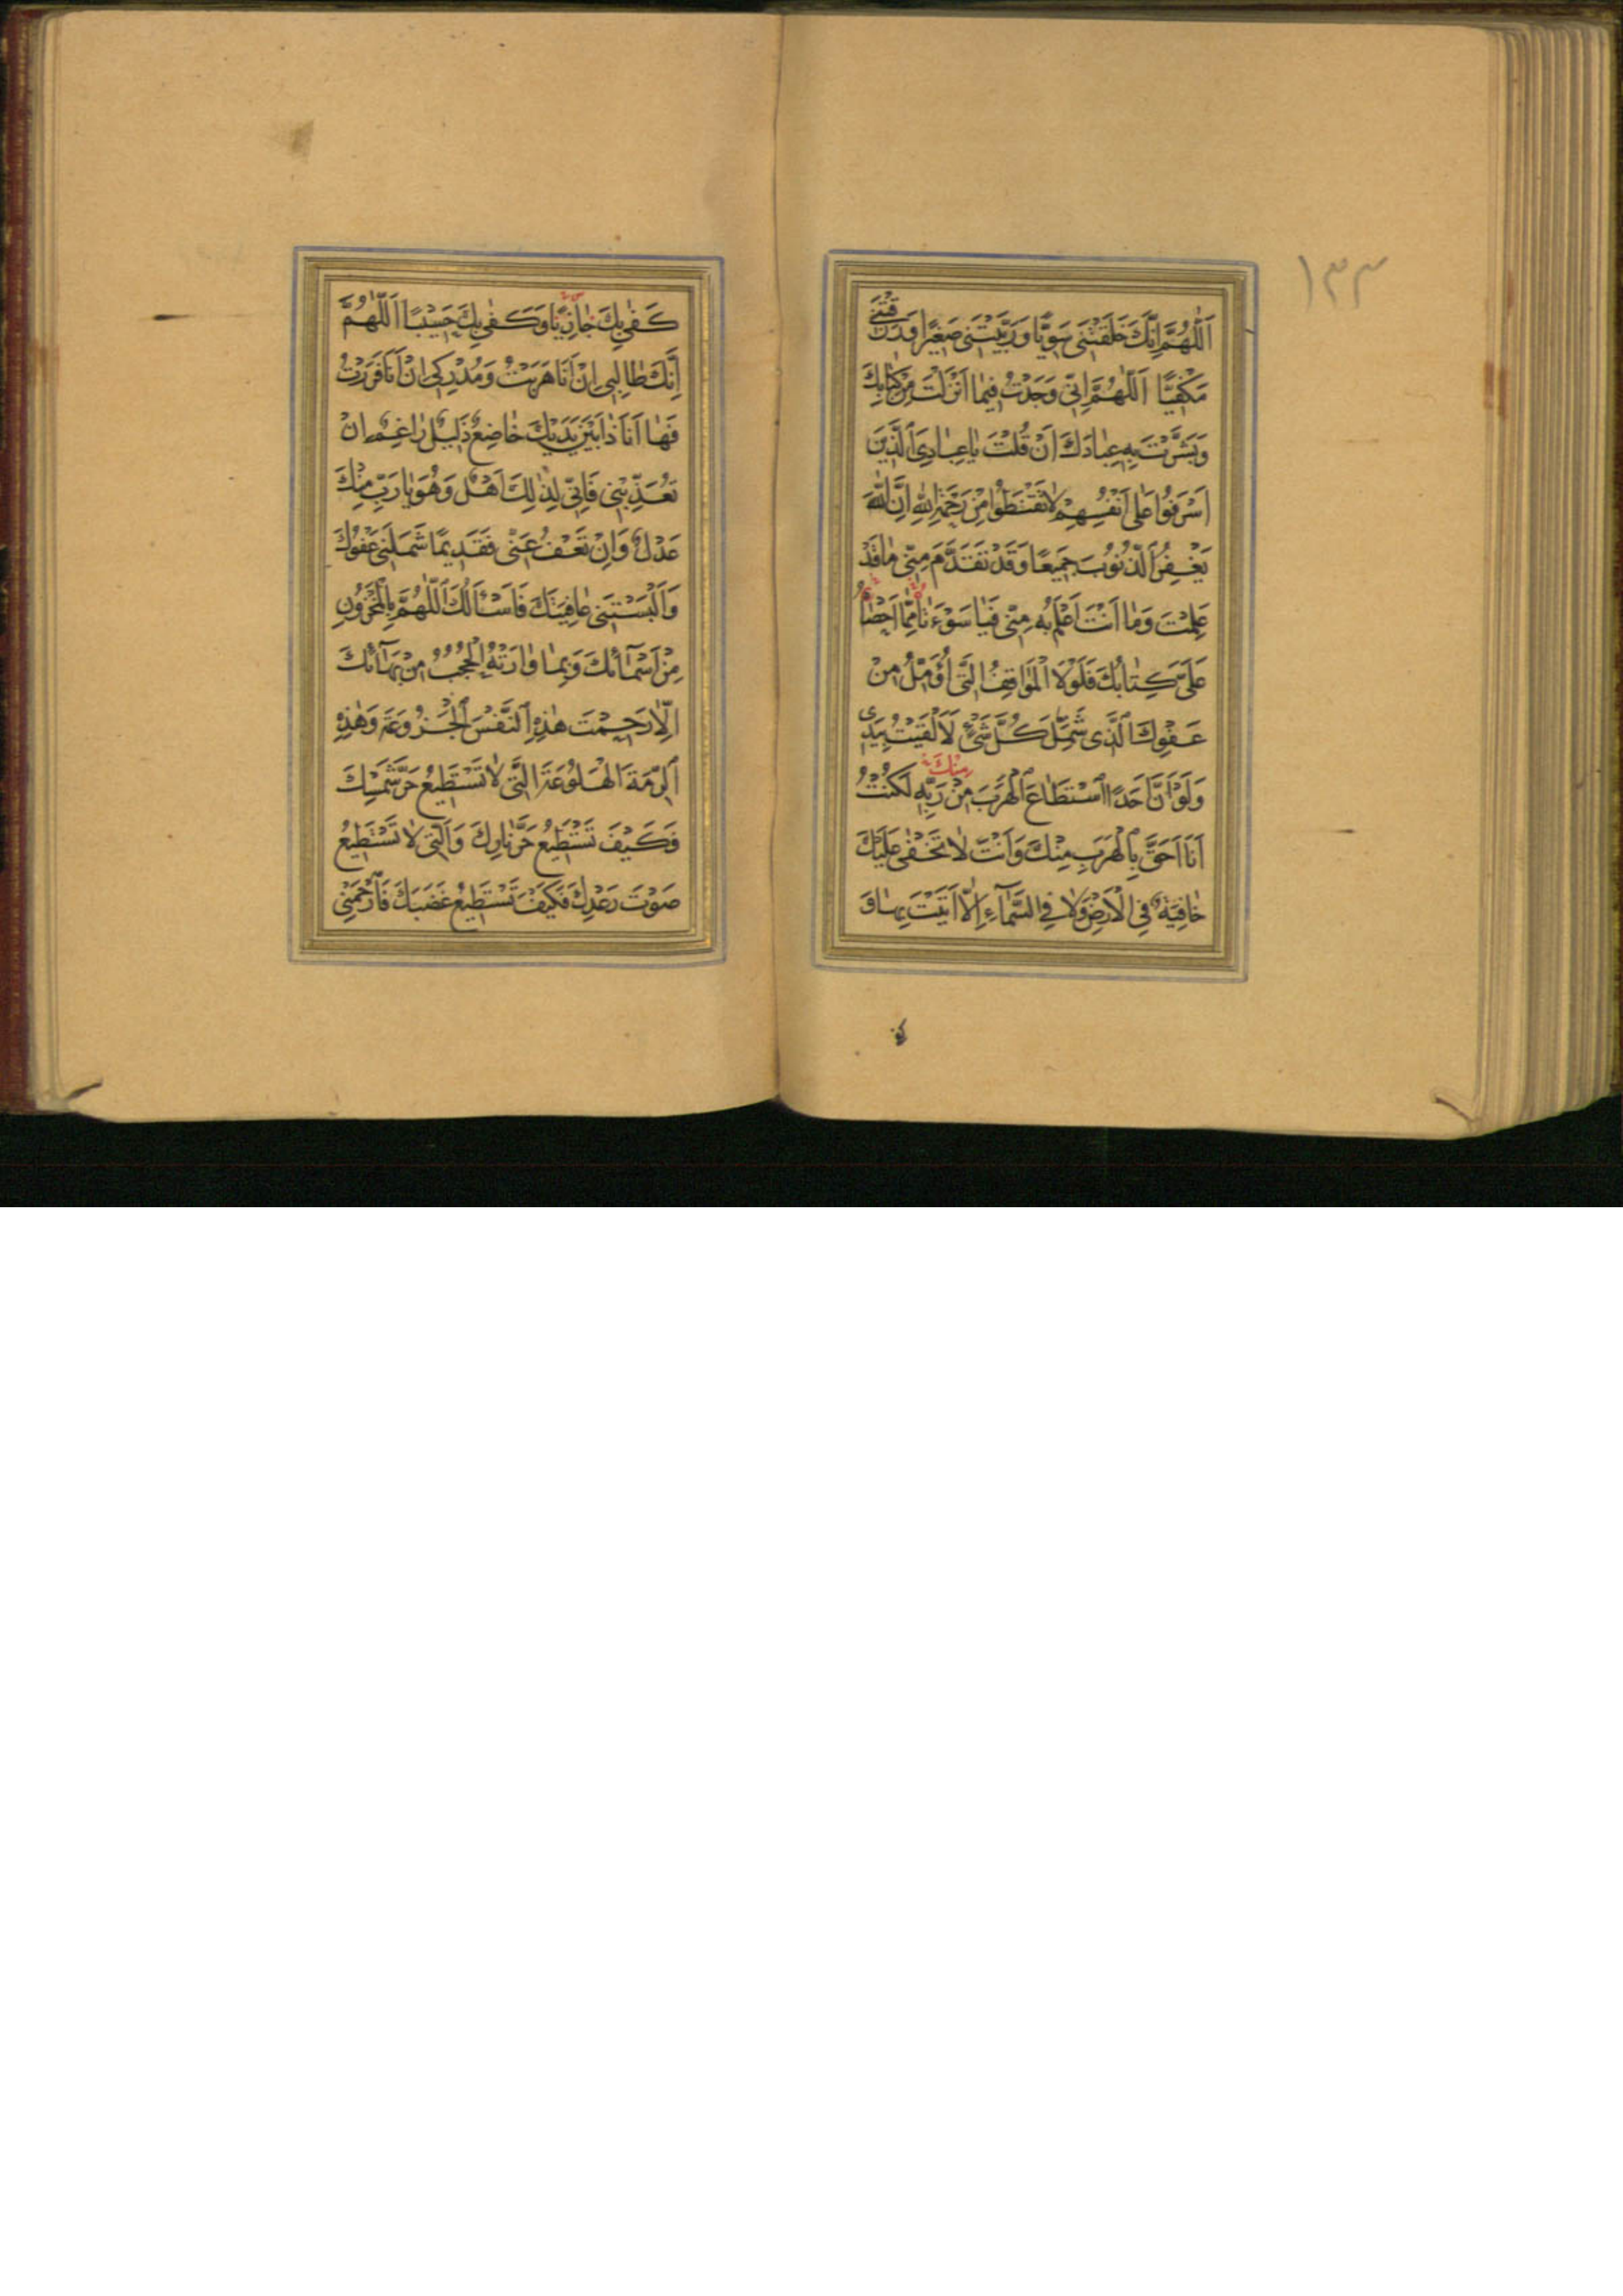 ١٣٣
اَللّٰهُمَّ اِنَّكَ خَلَقْتَنِی سَوِیًّا وَرَبَّیْتَنِی صَغِیْرًا وَرَزَقْتَنِی
مَكْفِیًّا اَللّٰهُمَّ اِنِّی وَجَدْتُ فِیمٰا اَنْزَلْتَ مِنْ كِتٰابِكَ
وَبَشَّرْتَ بِهِ عِبٰادَكَ اَنْ قُلْتَ یٰا عِبٰادِیَ الَّذِینَ
اَسْرَفُوا عَلٰی اَنْفُسِهِمْ لٰا تَقْنَطُوا مِنْ رَحْمَةِ اللّٰهِ اِنَّ اللّٰهَ
یَغْفِرُ الذُّنُوبَ جَمِیعًا وَقَدْ تَقَدَّمَ مِنِّی مٰا قَدْ
عَلِمْتَ وَمٰا اَنْتَ اَعْلَمُ بِهِ مِنِّی فَیٰا سَوْءَتٰا مِمّٰا اَحْصٰاهُ
عَلَیَّ كِتٰابُكَ فَلَوْلَا الْمَوٰاقِفُ الَّتِی اُؤَمِّلُ مِنْ
عَفْوِكَ الَّذِی شَمِلَ كُلَّ شَیْءٍ لَاَلْقَیْتُ بِیَدِی
وَلَوْ اَنَّ اَحَدًا اسْتَطٰاعَ الْهَرَبَ مِنْ رَبِّهِ لَكُنْتُ
اَنَا اَحَقَّ بِالْهَرَبِ مِنْكَ وَاَنْتَ لٰا تَخْفٰی عَلَیْكَ
خٰافِیَةٌ فِی الْاَرْضِ وَلٰا فِی السَّمٰٓاءِ اِلّٰا اَتَیْتَ بِهٰا وَ
مِنْكَ
كَفٰی بِكَ جٰازِیًا وَكَفٰی بِكَ حَسِیْبًا اَللّٰهُمَّ
اِنَّكَ طٰالِبِی اِنْ اَنَا هَرَبْتُ وَمُدْرِكِی اِنْ اَنَا فَرَرْتُ
فَهٰا اَنَا ذٰا بَیْنَ یَدَیْكَ خٰاضِعٌ ذَلِیلٌ رٰاغِمٌ اِنْ
تُعَذِّبْنِی فَاِنِّی لِذٰلِكَ اَهْلٌ وَهُوَ یٰا رَبِّ مِنْكَ
عَدْلٌ وَاِنْ تَعْفُ عَنِّی فَقَدِیمًا شَمَلَنِی عَفْوُكَ
وَاَلْبَسْتَنِی عٰافِیَتَكَ فَاَسْئَالُكَ اَللّٰهُمَّ بِالْمَخْزُونِ
مِنْ اَسْمٰٓائِكَ وَبِمٰا وٰارَتْهُ الْحُجُبُ مِنْ بَهٰٓائِكَ
اِلّٰا رَحِمْتَ هٰذِهِ النَّفْسَ الْجَزُوعَةَ وَهٰذِهِ
الرِّمَّةَ الْهَلُوعَةَ الَّتِی لٰا تَسْتَطِیعُ حَرَّ شَمْسِكَ
فَكَیْفَ تَسْتَطِیعُ حَرَّ نٰارِكَ وَالَّتِی لٰا تَسْتَطِیعُ
صَوْتَ رَعْدِكَ فَكَیْفَ تَسْتَطِیعُ غَضَبَكَ فَارْحَمْنِی